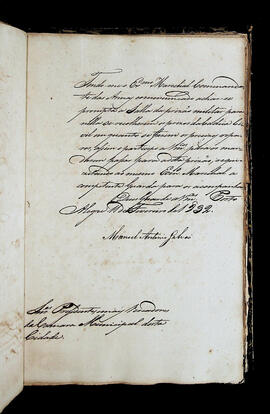 Tendo me o Exmo Marechal Commandan
te das Armas communicado achar-se
prompta a Salla da prizão militar para
nella se recolherem os prezos da Cadeia Ci
vil em quanto se
o participo a Vmces para os man
darem passar para dita prizão, requi
zitando ao mesmo Exmo Marechal a
competente Guarda para os acompanhar.
Deos Guarde a Vmces Porto
Alegre de Fevereiro de 1832.
Manoel Antonio Galvão
Snres Prezidente, e mais Vereadores
da Camara Municipal desta
Cidade.